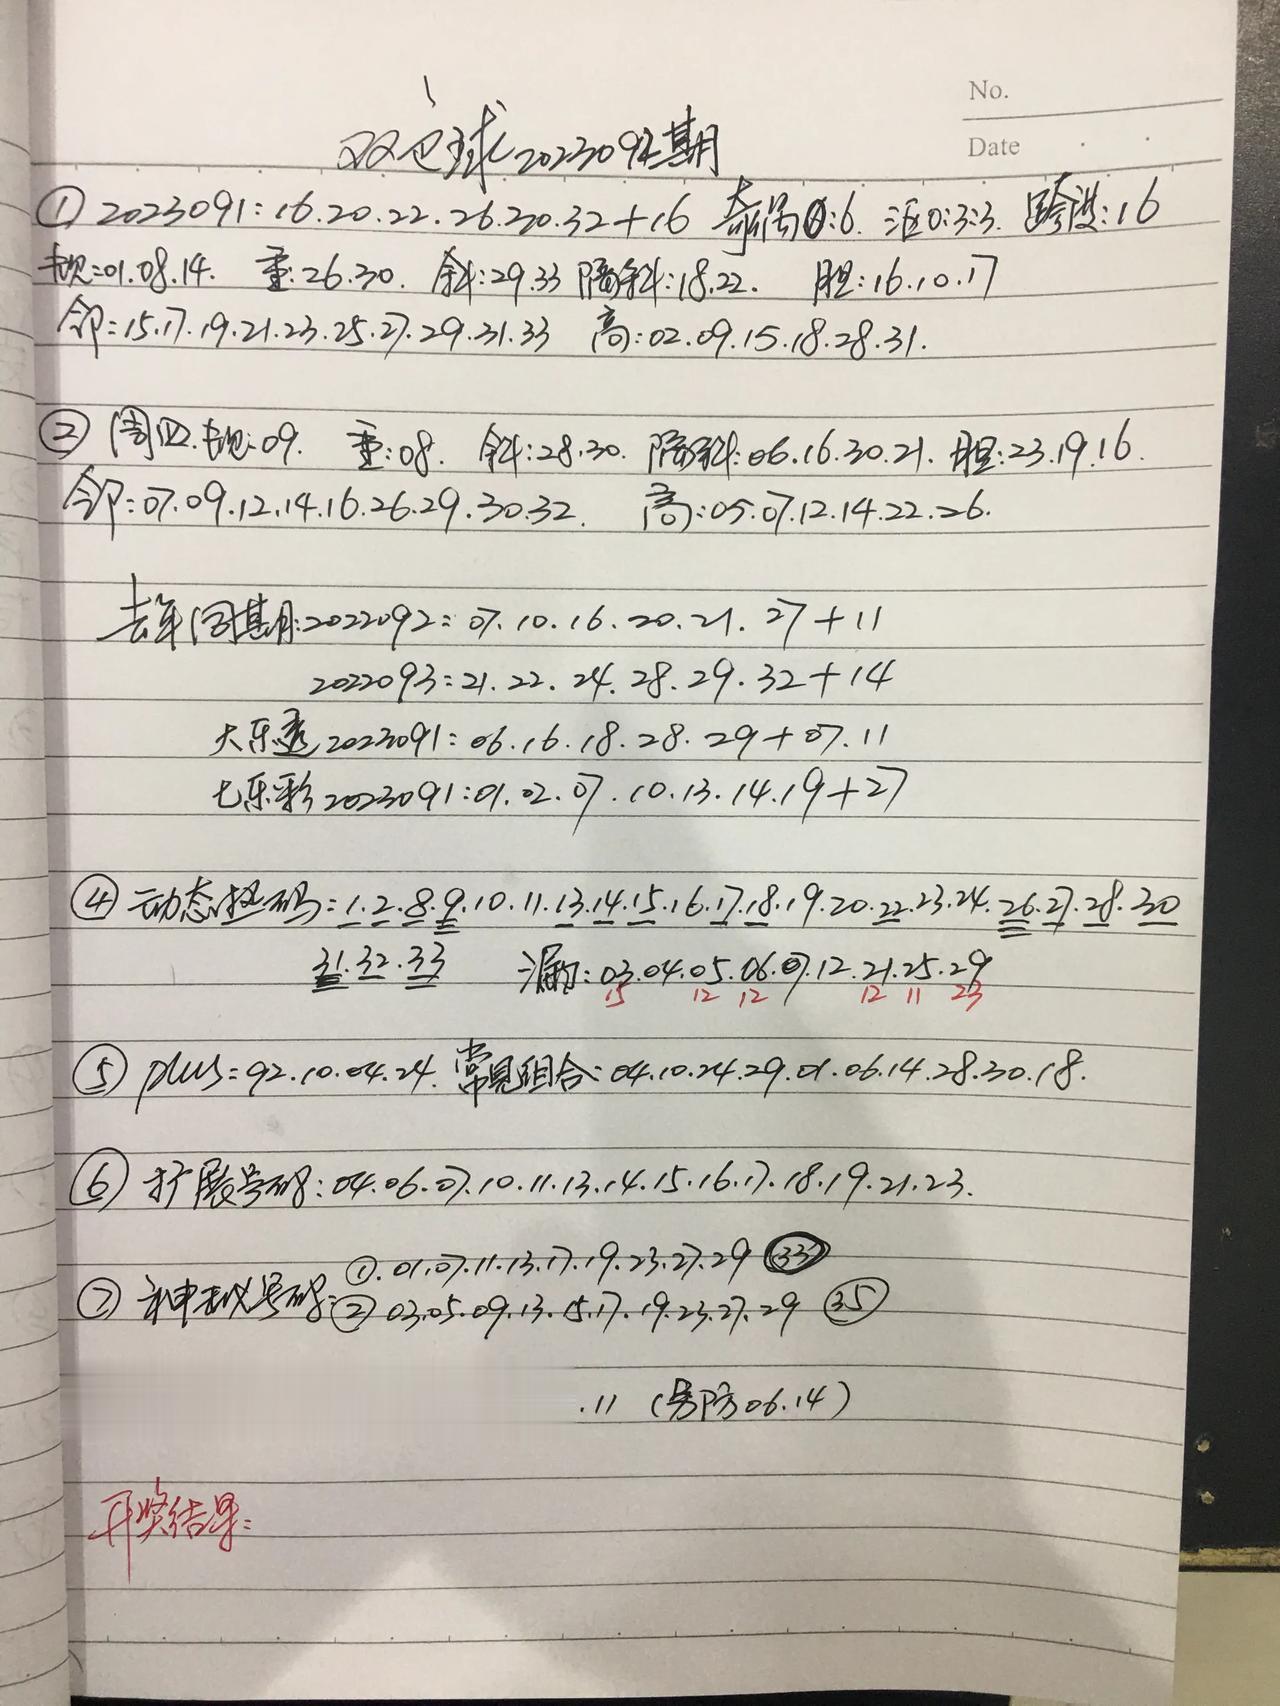 No.
Date
双色球2023092期
① 2023091:16.20.22.26.30.32+16 奇偶0:6. 区0:3:3. 跨度:16
规:01.08.14. 重:26.30. 斜:29.33 隔斜:18.22. 胆:16.10.17
邻:15.17.19.21.23.25.27.29.31.33 高:02.09.15.18.28.31.
② 周四.规:09. 重:08. 斜:28.30. 隔斜:06.16.30.21. 胆:23.19.16.
邻:07.09.12.14.16.26.29.30.32. 高:05.07.12.14.22.26.
去年同期:2022092:07.10.16.20.21.27+11
2022093:21.22.24.28.29.32+14
大乐透2023091:06.16.18.28.29+07.11
七乐彩2023091:01.02.07.10.13.14.19+27
④ 动态热码:1.2.8.9.10.11.13.14.15.16.17.18.19.20.22.23.24.26.27.28.30
31.32.33 漏:03.04.05.06.07.12.21.25.29
15 12 12 12 11 23
⑤ plus:92.10.04.24. 常见组合:04.10.24.29.01.06.14.28.30.18.
⑥ 扩展号码:04.06.07.10.11.13.14.15.16.17.18.19.21.23.
⑦ 神秘号码:①.01.07.11.13.17.19.23.27.29 33
② 03.05.09.13.15.17.19.23.27.29 35
.11 (另防06.14)
开奖结果: